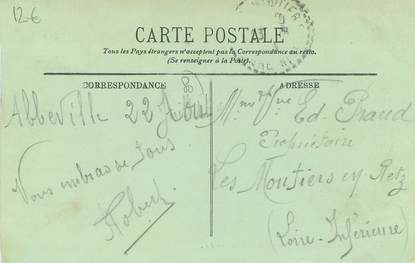 12€
CARTE POSTALE
Tous les Pays étrangers n'acceptent pas la Correspondance au recto.
(Se renseigner à la Poste).
CORRESPONDANCE
Abbeville 22
Vous embrasse tous
Robert
ADRESSE
Ed. Praud
Propriétaire
Les Moutiers en Retz
(Loire-Inférieure)